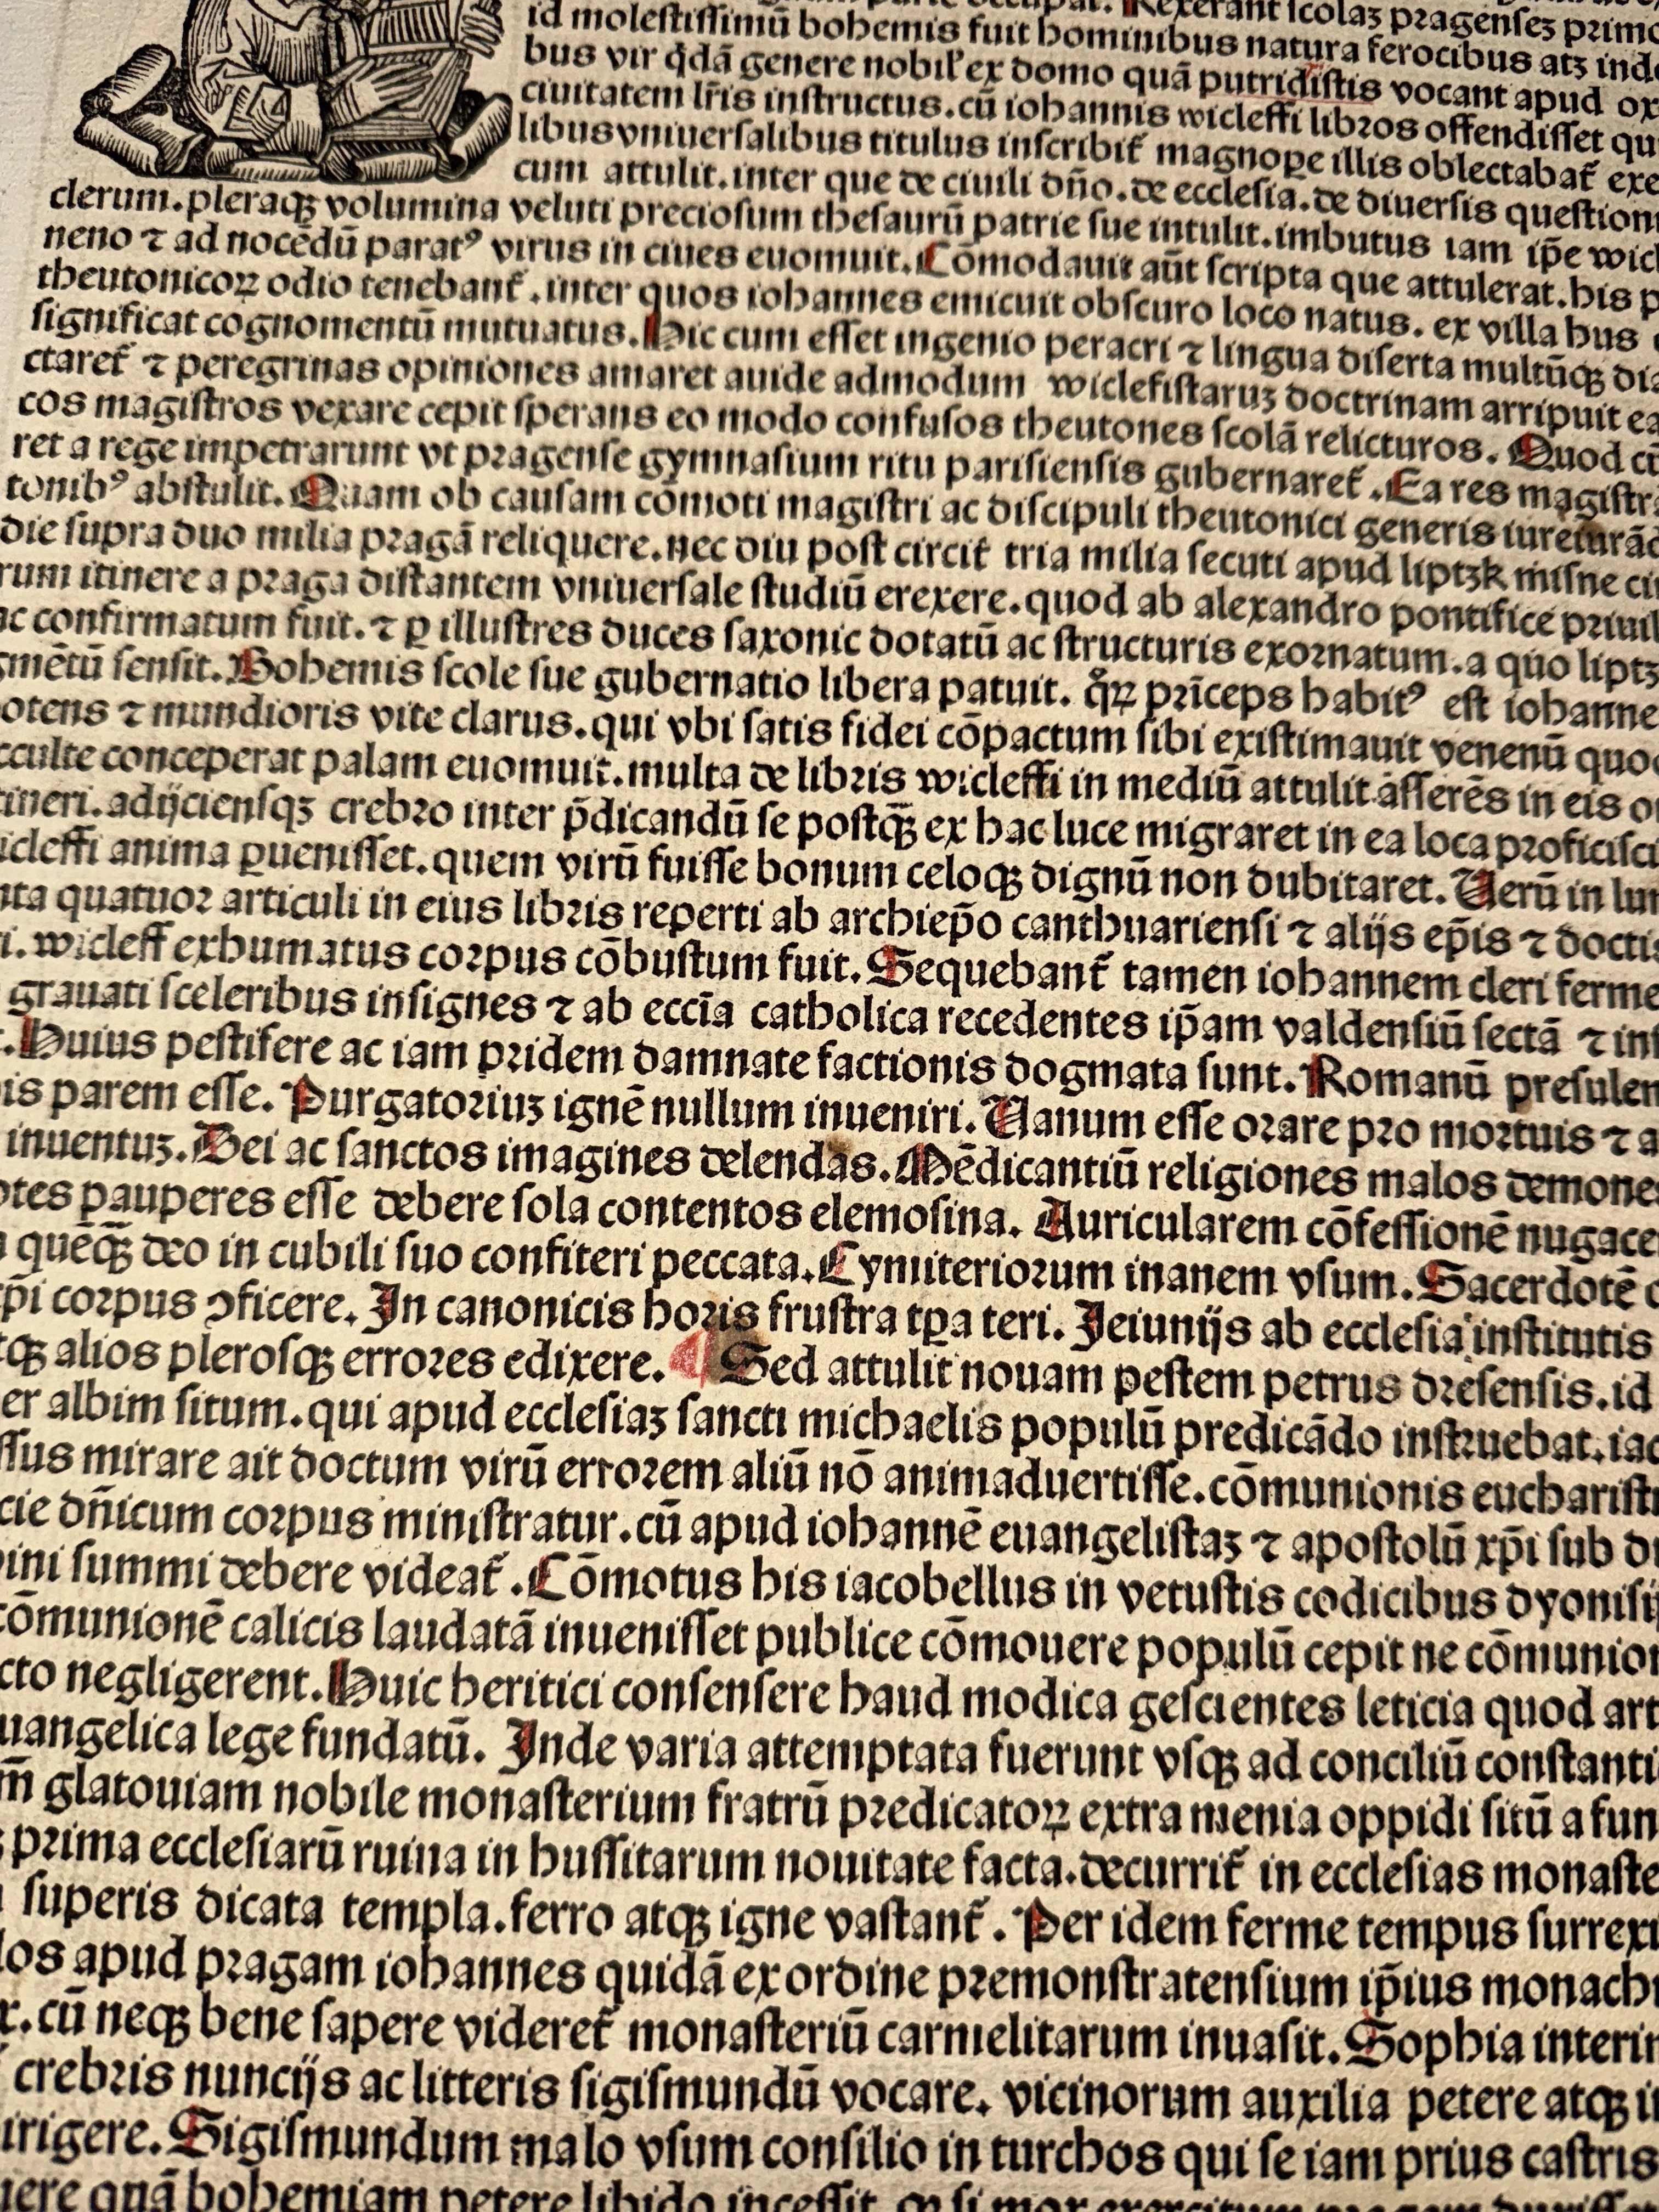 Rexerant scolaꝫ pragenseꝫ primo
id molestissimū bohemis fuit hominibus natura ferocibus atꝫ
bus vir q̄dā genere nobil' ex domo quā putridistis vocant apud ox
ciuitatem lr̄is instructus. cū iohannis wicleffi libros offendisset qu
libus vniuersalibus titulus inscribit̄ magnoꝑe illis oblectabat̄ exe
cum attulit. inter que de ciuili dn̄o. de ecclesia. de diuersis question
clerum. pleraqꝫ volumina veluti preciosum thesaurū patrie sue intulit. imbutus iam ip̄e wicl
neno ⁊ ad nocēdū paratꝰ virus in ciues euomuit. Cōmodauit aūt scripta que attulerat. his p
theutonicoꝝ odio tenebant̄. inter quos iohannes emicuit obscuro loco natus. ex villa hus
significat cognomentū mutuatus. Hic cum esset ingenio peracri ⁊ lingua diserta multūqꝫ dia
ctaret̄ ⁊ peregrinas opiniones amaret auide admodum wiclefistaruꝫ doctrinam arripuit ea
cos magistros vexare cepit sperans eo modo confusos theutones scolā relicturos. Quod cū
ret a rege impetrarunt vt pragense gymnasium ritu parisiensis gubernaret̄. Ea res magistra
tonibꝰ abstulit. Quam ob causam cōmoti magistri ac discipuli theutonici generis iureiurād
die supra duo milia pragā reliquere. nec diu post circit̄ tria milia secuti apud liptzk misne ci
rum itinere a praga distantem vniuersale studiū erexere. quod ab alexandro pontifice priuil
ac confirmatum fuit. ⁊ ꝑ illustres duces saxonie dotatū ac structuris exornatum. a quo liptz
gmētū sensit. Bohemis scole sue gubernatio libera patuit. q̊ꝝ prīceps habitꝰ est iohanne
otens ⁊ mundioris vite clarus. qui vbi satis fidei cōpactum sibi existimauit venenū quod
cculte conceperat palam euomuit. multa de libris wicleffi in mediū attulit asserēs in eis o
tineri. adijciensqꝫ crebro inter p̄dicandū se postqꝫ̄ ex hac luce migraret in ea loca proficisci
icleffi anima ꝑuenisset. quem virū fuisse bonum celoqꝫ dignū non dubitaret. Verū in lun
nta quatuor articuli in eius libris reperti ab archiep̄o canthuariensi ⁊ alijs ep̄is ⁊ doctis
i. wicleff exhumatus corpus cōbustum fuit. Sequebant̄ tamen iohannem cleri ferme
grauati sceleribus insignes ⁊ ab eccīa catholica recedentes ip̄am valdensiū sectā ⁊ ins
. Huius pestifere ac iam pridem damnate factionis dogmata sunt. Romanū presulem
is parem esse. Purgatoriuꝫ ignē nullum inueniri. Vanum esse orare pro mortuis ⁊ a
inuentuꝫ. Dei ac sanctos imagines delendas. Mēdicantiū religiones malos demones
otes pauperes esse debere sola contentos elemosina. Auricularem cōfessionē nugacem
quēqꝫ̄ deo in cubili suo confiteri peccata. Cymiteriorum inanem vsum. Sacerdotē
xp̄i corpus ꝯficere. In canonicis horis frustra tꝑa teri. Jeiunijs ab ecclesia institutis
tqꝫ alios plerosqꝫ errores edixere. ¶ Sed attulit nouam pestem petrus dresensis. id
er albim situm. qui apud ecclesiaꝫ sancti michaelis populū predicādo instruebat. iac
ssus mirare ait doctum virū errorem aliū nō animaduertisse. cōmunionis eucharisti
cie dn̄icum corpus ministratur. cū apud iohannē euangelistaꝫ ⁊ apostolū xp̄i sub du
ini summi debere videat̄. Cōmotus his iacobellus in vetustis codicibus dyonisij
cōmunionē calicis laudatā inuenisset publice cōmouere populū cepit ne cōmunion
cto negligerent. Huic heritici consensere haud modica gescientes leticia quod art
uangelica lege fundatū. Inde varia attemptata fuerunt vsqꝫ ad conciliū constanti
m̄ glatouiam nobile monasterium fratrū predicatoꝝ extra menia oppidi sitū a fun
prima ecclesiarū ruina in hussitarum nouitate facta. decurrit̄ in ecclesias monaste
superis dicata templa. ferro atqꝫ igne vastant̄. Per idem ferme tempus surrexi
los apud pragam iohannes quidā ex ordine premonstratensium ip̄ius monach
x. cū neqꝫ bene sapere videret̄ monasteriū carmelitarum inuasit. Sophia interim
crebris nuncijs ac litteris sigismundū vocare. vicinorum auxilia petere atqꝫ i
irigere. Sigismundum malo vsum consilio in turchos qui se iam prius castris
uere quā bohemiam petere libido incessit.